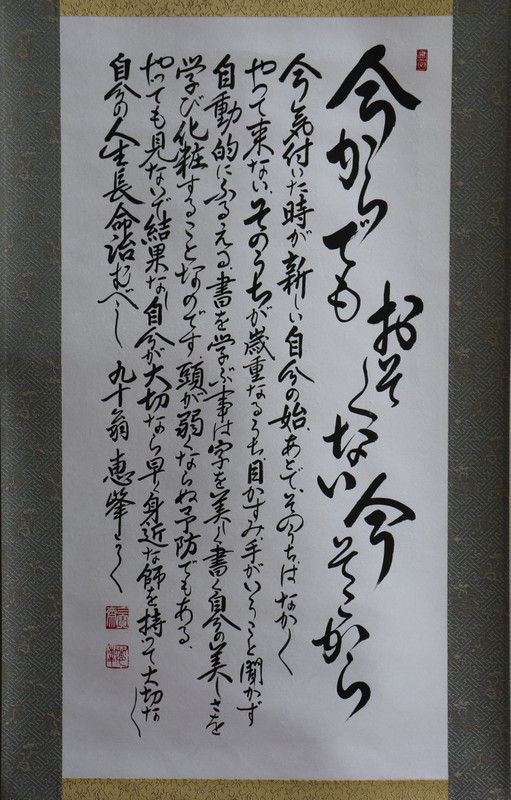 今からでも
おそくない今
そこから
今気付いた時が新しい自分の始、あとで、そのうちは なかく
やって来ない、そのうちが歳重なるうち、目かすみ、手がいうこと聞かず
自動的にふるえる、書を学ぶ事は字を美しく書く自分の美しさを
学び化粧することなのです 頭が弱くならぬ予防でもある、
やっても見ないで結果なし 自分が大切なら早く身近な師を持って大切な
自分の人生長命治むべし 九十翁 恵峰